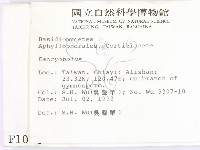 國立自然科學博物館
NATIONAL MUSEUM OF NATURAL SCIENCE
TAICHUNG, TAIWAN, R.O.CHINA
Basidiomycetes :
Aphyllophorales, Corticiaceae
Dacryobolus
Loc.: Taiwan, Chiayi: Alishan;
23.32N, 120.47E; on branch of
gymnosperm.
Col.: S.H. Wu(吳聲華); No. Wu 9207-10
Date: Jul. 02, 1992
Det.: S.H. Wu(吳聲華)
F10